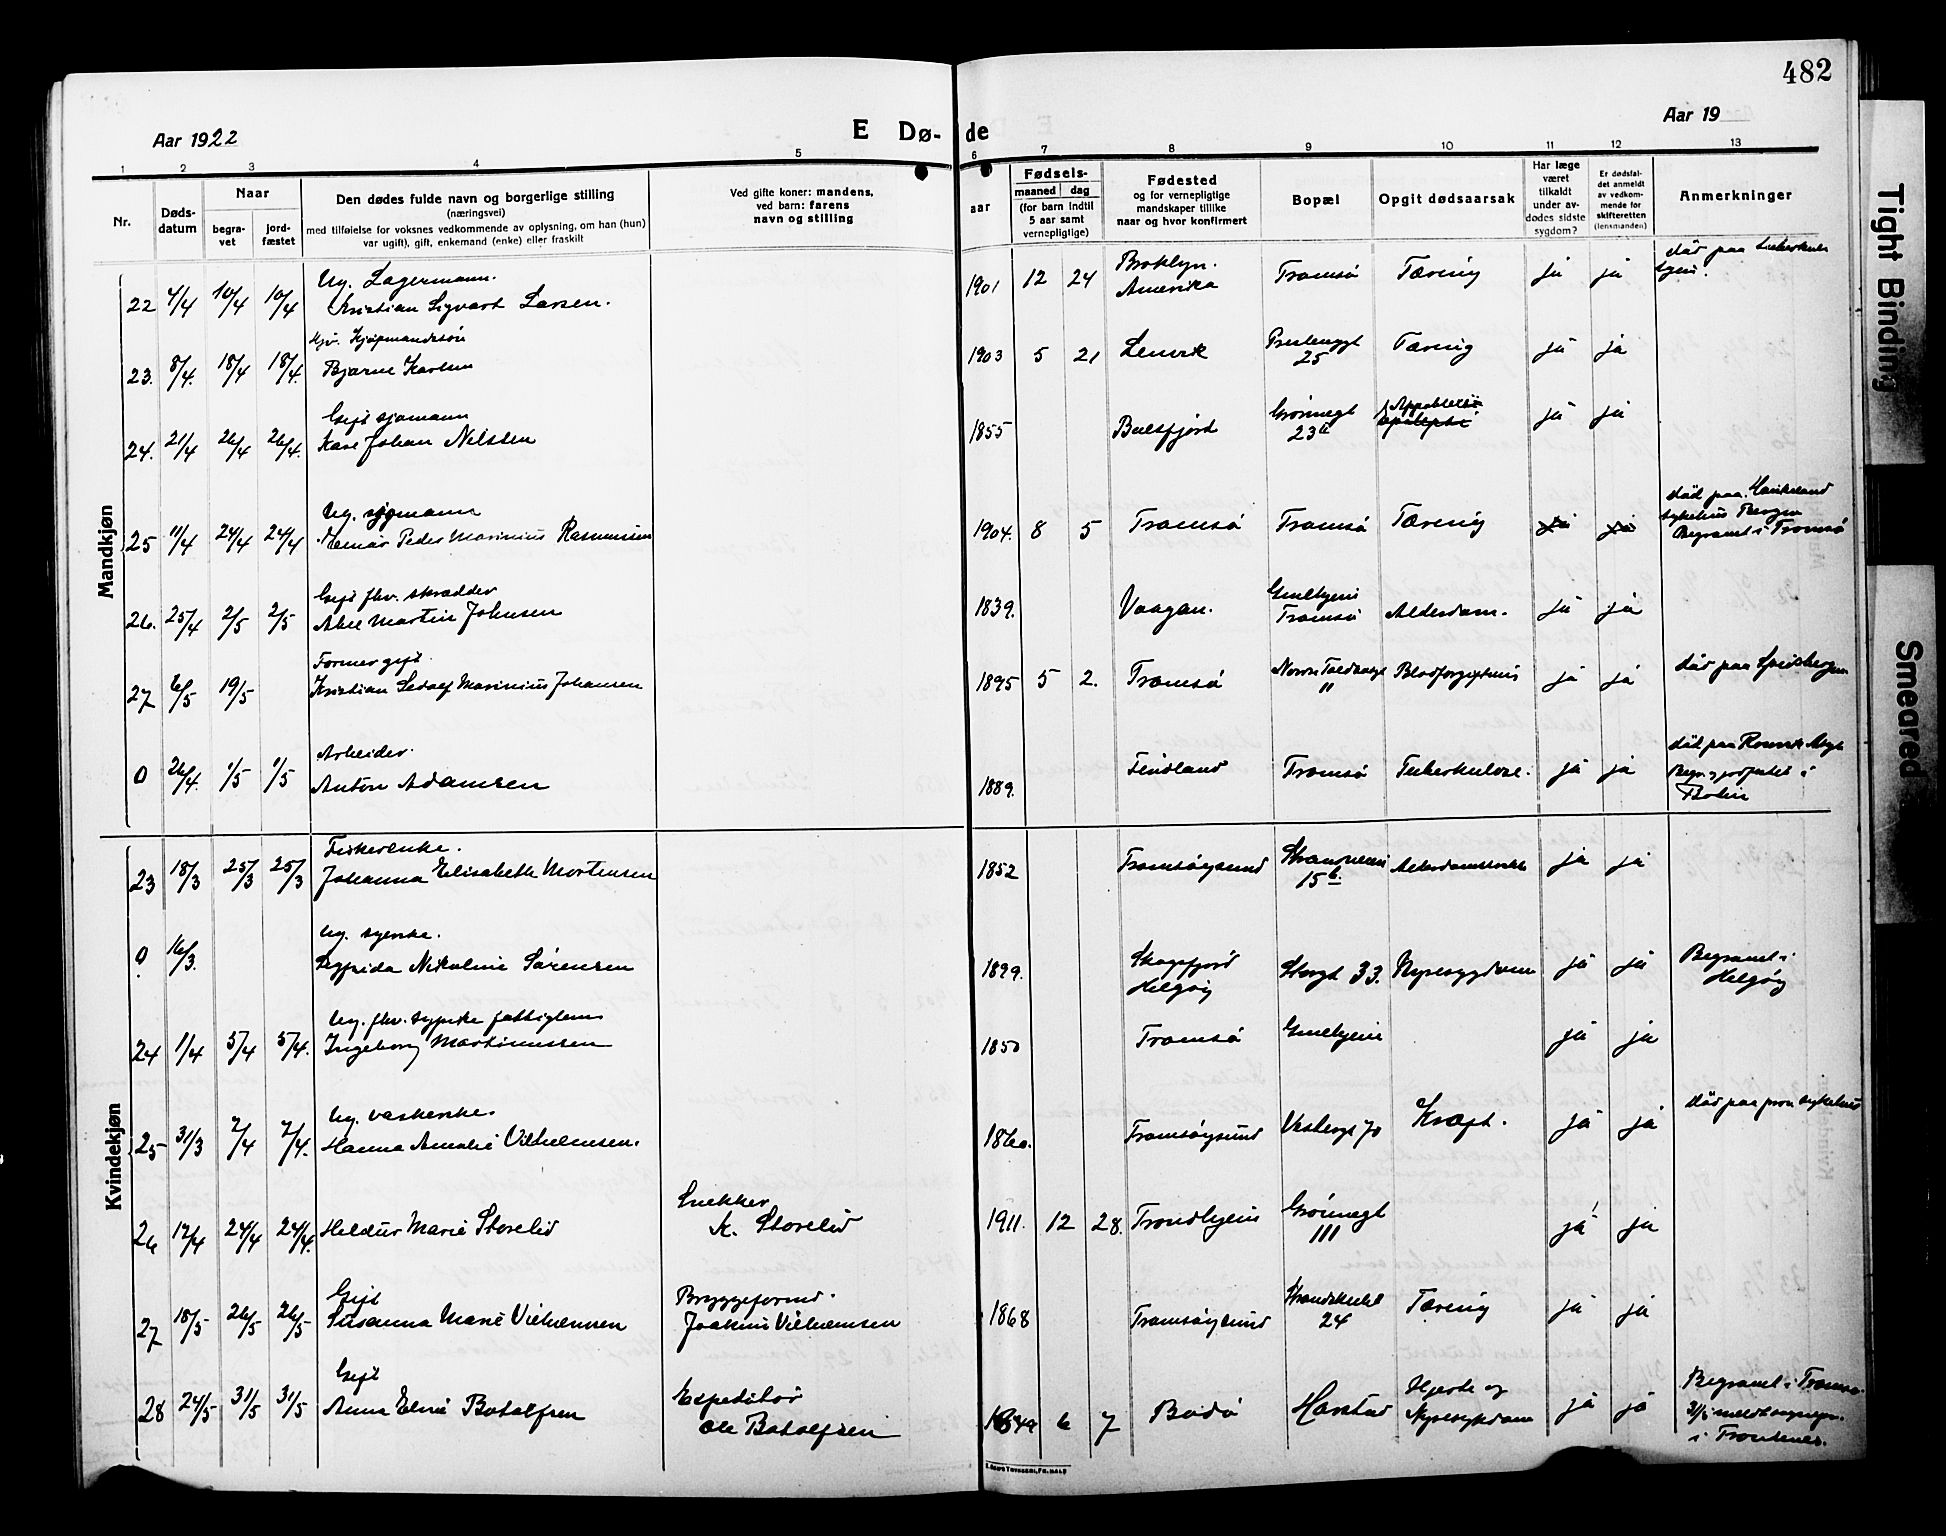 482
Aar 1922
E Dø-
de
Aar 19
1 2 3 4 5 6 7 8 9 10 11 12 13
Nr.
Døds-
datum
Naar
begra-
vet
jord-
fæstet
Den dødes fulde navn og borgerlige stilling
(næringsvei)
med tilføielse for voksnes vedkommende av oplysning, om han (hun)
var ugift), gift, enkemand (enke) eller fraskilt
Ved gifte koner: mandens,
ved barn: farens
navn og stilling
Fødsels-
aar
maaned dag
(for barn indtil
5 aar samt
vernepligtige)
Fødested
og for vernepligtige
mandskaper tillike
naar og hvor konfirmert
Bopæl
Opgit dødsaarsak
Har læge
været
tilkaldt
under av-
dødes sidste
sygdom?
Er dødsfal-
det anmeldt
av vedkom-
mende for
skifteretten
(lensmanden)
Anmerkninger
Mandkjøn
Ug. Lagermann.
22 4/4 10/4 10/4 Kristian Sigvart Larsen. 1901 12 24 Broklyn. Amerika Tromsø Tæring ja ja død paa
Kjøpmandssøn
23. 8/4. 18/4 18/4. Bjarne Karlsen 1903 5 21 Lenvik 25 Tæring ja ja
Gift sjømann
24. 21/4 26/4 26/4. Kare Johan Nilssen 1855 Balsfjord Grønnegt 23 II ja ja
Ug. sjømann
25 11/4 24/4 24/4 Einar Peder Marinius Rasmussen 1904. 8 5 Tromsø Tromsø Tæring ja ja død paa Haukeland
sykehus Bergen
Begravet i Tromsø
Gift fhv. skrædder
26. 25/4 2/5 2/5 Abel Martin Johnsen 1839. Vaagan. Gmlehjem Tromsø Alderdom. ja ja
Former gift.
27 6/5 19/5 Kristian Marinius Johansen 1895 5 2. Tromsø 11 Blodforgiftning ja ja død paa Spidsbergen
Arbeider.
0 26/4. 1/5 1/5 Anton Adamsen 1889. Findland Tromsø Tuberkulose. ja ja død paa
i
Kvindekjøn
Fiskerenke.
23 18/3 25/3 25/3 Johanna Elisabeth Mortensen 1852 Tromsøysund 15 b. ja ja
Ug.
0 16/3. Nikoline Sørensen Helgøy Storgt 33. Nyresygdom ja ja Begravet i
Helgøy
Ug. fhv. sypike fattiglem
24 1/4 5/4 5/4. Ingeborg Martinussen 1850 Tromsø Gmlehjem ja ja
Ug.
25 31/3 7/4 7/4. Hanna Amalie Vilhelmsen. 1860. Tromsøysund 70 Kræft. ja ja død paa sykehus
26 17/4 24/4 24/4. Heldur Marie Storelid Snekker K. Storelid 1911. 12 28. Trondhjem Grønnegt 111 ja ja
Gift
27 18/5 26/5 26/5 Susanna Marie Vilhelmsen Bryggeformd. Joakim Vilhelmsen 1868 Tromsøysund 24 Tæring ja ja
Gift
28 24/5 31/5 31/5 Anna Eline Botolfsen Expeditør Ole Botolfsen 6 7 Bodø Harstad Hjerte og Nyresykdom ja ja Begravet i Tromsø
31/5
i Trondenes.
Tight Binding
Smeared